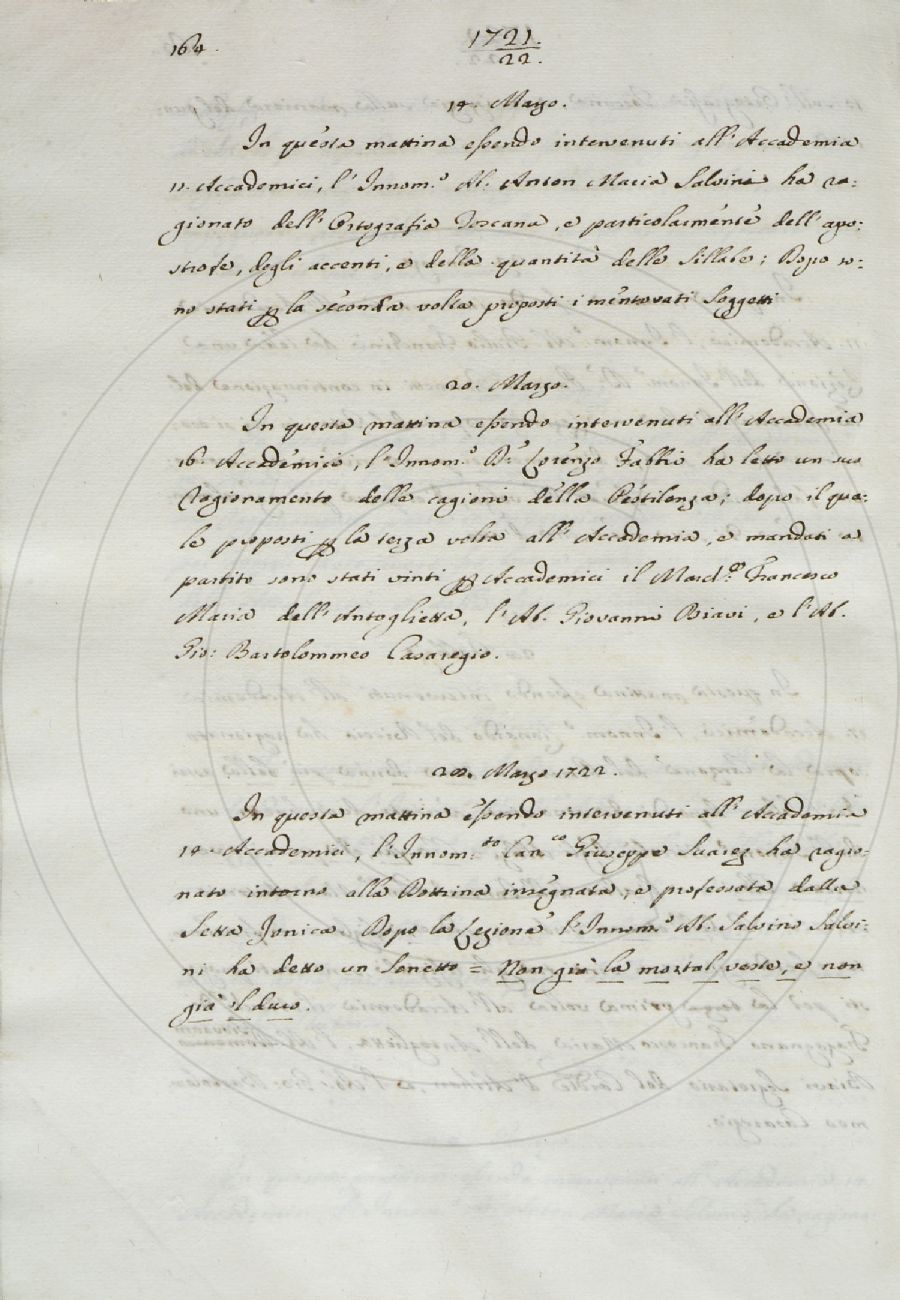 164.
1721.
22.
14. Marzo.
In questa mattina essendo intervenuti all'Accademia
11. Accademici, l'Innom.º Ab. Anton Maria Salvini ha ra:
gionato dell'Ortografia Toscana, e particolarmente dell'apo:
strofe, degli accenti, e della quantità delle Sillabe; Dopo so:
no stati per la seconda volta proposti i mentovati Soggetti
20. Marzo.
In questa mattina essendo intervenuti all'Accademia
16. Accademici, l'Innom.º D.r Lorenzo Fabbri ha letto un suo
Ragionamento delle cagioni della Pestilenza; dopo il qua:
le proposti per la terza volta all'Accademia, e mandati a
partito sono stati vinti per Accademici il March.e Francesco
Maria dell'Antoglietta, l'Ab. Giovanni Biavi, e l'Ab.
Gio: Bartolommeo Casaregio.
Marzo 1722.
In questa mattina essendo intervenuti all'Accademia
14. Accademici, l'Innom.to Can.co Giuseppe Suarez ha ragio:
nato intorno alla Dottrina insegnata, e professata dalla
Setta Jonica. Dopo la Lezione l'Innom.º Ab. Salvino Salvi:
ni ha detto un Sonetto = Non già la mortal veste, e non
già il duro.